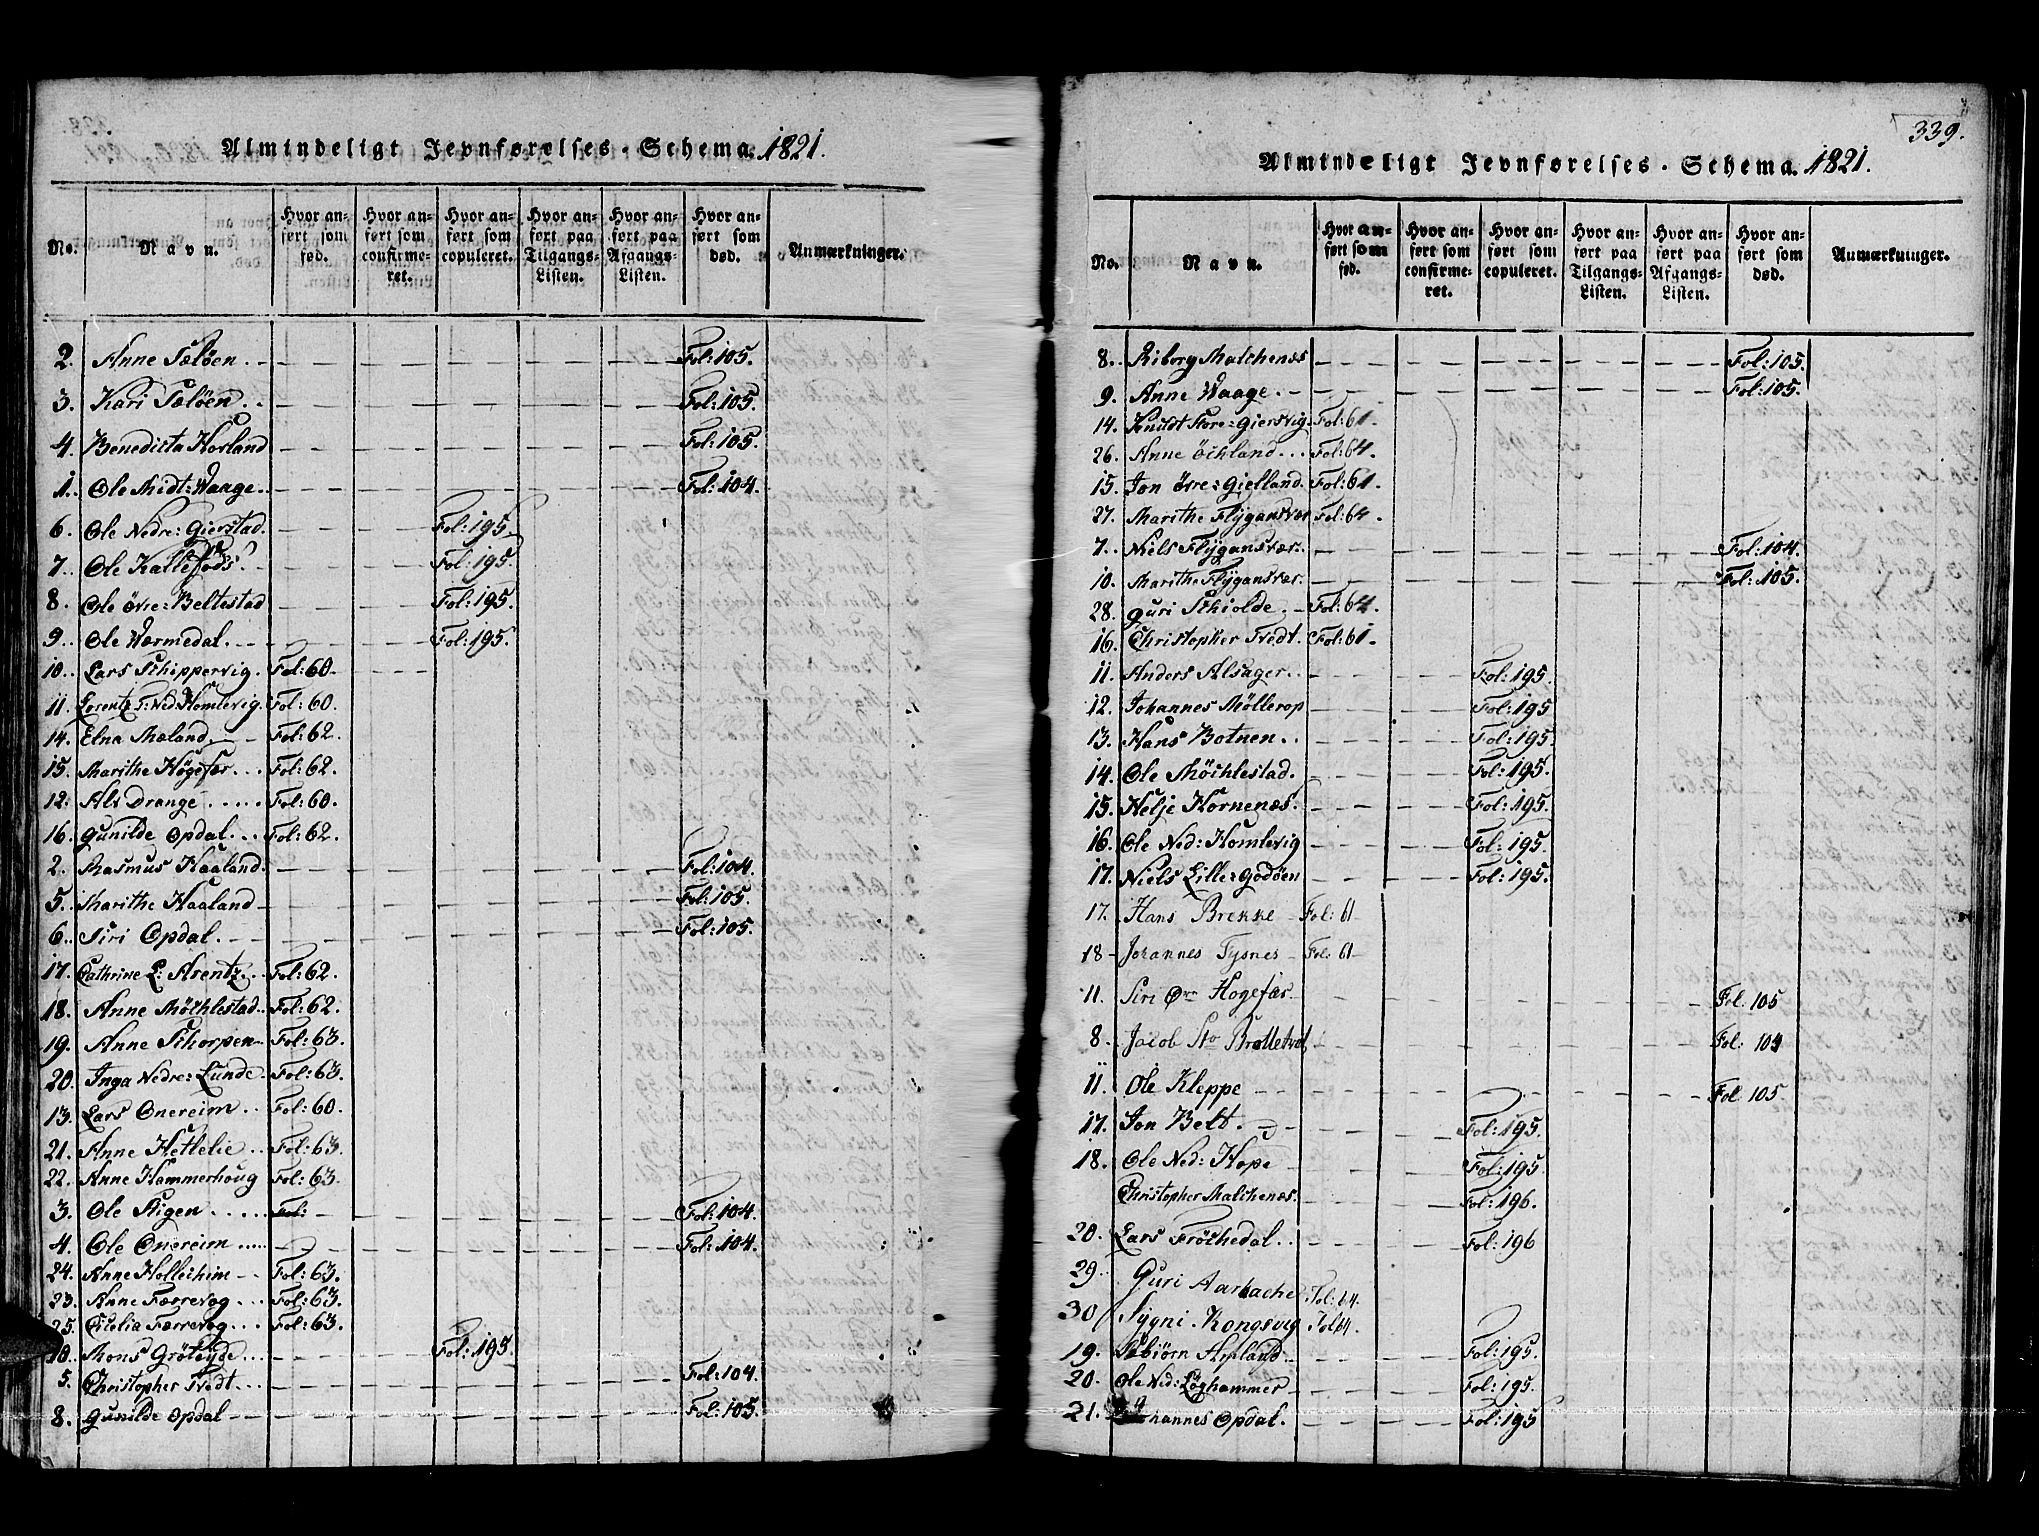 Almindeligt Jevnførelses-Schema. 1821.
No. Navn. Hvor anført som fød. Hvor anført som confirmeret. Hvor anført som copuleret. Hvor anført paa Tilgangs-Listen. Hvor anført paa Afgangs-Listen. Hvor anført som død. Anmærkninger.
2. Anne Sæløen. Fol: 105.
3. Kari Sæløen. Fol: 105.
4. Benedicta Horland Fol: 105.
1. Ole Midt: Waage. Fol: 104.
6. Ole Nedre: Gierstad. Fol: 195.
7. Ole Kallefods. Fol: 195.
8. Ole övre: Beltestad Fol: 195.
9. Ole Wærmedal. Fol: 195.
10. Lars Schippervig. Fol: 60.
11. Lorentz T: Ned: Homlevig. Fol: 60.
14. Elna Mæland. Fol: 62.
15. Marithe Høgefær... Fol: 62.
12. Alv Drange..... Fol: 60.
16. Gunilde Opdal... Fol: 62.
2. Rasmus Haaland. Fol: 104.
5. Marithe Haaland Fol: 105.
6. Siri Opdal. Fol: 105.
17. Cathrine L: Arentz. Fol: 62.
18. Anne Möchlestad. Fol: 62.
19. Anne Schorpen Fol: 63.
20. Inga Nedre: Lunde. Fol: 63.
13. Lars Onereim.. Fol: 60.
21. Anne Hettelie.. Fol: 63.
22. Anne Hammerhoug Fol: 63.
3. Ole Stigen..... Fol: Fol: 104.
4. Ole Onereim..... Fol: 104.
24. Anne Hollechim Fol: 63.
23. Anne Færrevog... Fol: 63.
25. Cicelia Færrevog... Fol: 63.
10. Mons Gröteyde... Fol: 195
5. Christopher Tvedt... Fol: 104.
8. Gunilde Opdal Fol: 105.
339.
Almindeligt Jevnførelses-Schema. 1821.
No. Navn. Hvor anført som fød. Hvor anført som confirmeret. Hvor anført som copuleret. Hvor anført paa Tilgangs-Listen. Hvor anført paa Afgangs-Listen. Hvor anført som død. Anmærkninger.
8. Riborg Malchenæs Fol: 105.
9. Anne Waage. Fol: 105.
14. Knudt Store: Giersvig. Fol: 61.
26. Anne Öchland... Fol: 64.
15. Jon övre: Gielland. Fol: 61.
27. Marithe Flÿgansvær Fol: 64.
7. Niels Flÿgansvær. Fol: 104.
10. Marithe Flÿgansvær. Fol: 105.
28. Guri Schiolde. Fol: 64.
16. Christopher Tvedt. Fol: 61.
11. Anders Alsager.. Fol: 195.
12. Johannes Möllerop Fol: 195
13. Hans Botnen.. Fol: 195.
14. Ole Möchlestad. Fol: 195.
15. Helje Hornenæs. Fol: 195.
16. Ole Ned: Homlevig Fol: 195.
17. Niels Lille: Godöen Fol: 195.
17. Hans Brekke Fol: 61
18 Johannes Tysnes Fol: 61
11. Siri Øre Høgefær. Fol. 105
8. Jacob Sto Brattetvet Fol: 104
11 Ole Kleppe Fol 105
17. Jon Belt. Fol: 195.
18. Ole Ned: Hope Fol: 195.
Christopher Malchenæs. Fol: 196.
20. Lars Fröchedal.. Fol: 196
29. Guri Aarbache Fol: 64.
30 Sygni Kongsvig Fol 64.
19. Æsbiörn Apland. Fol: 195.
20. Ole Ned: Löghammer Fol: 195.
21. Johannes Opdal. Fol: 195